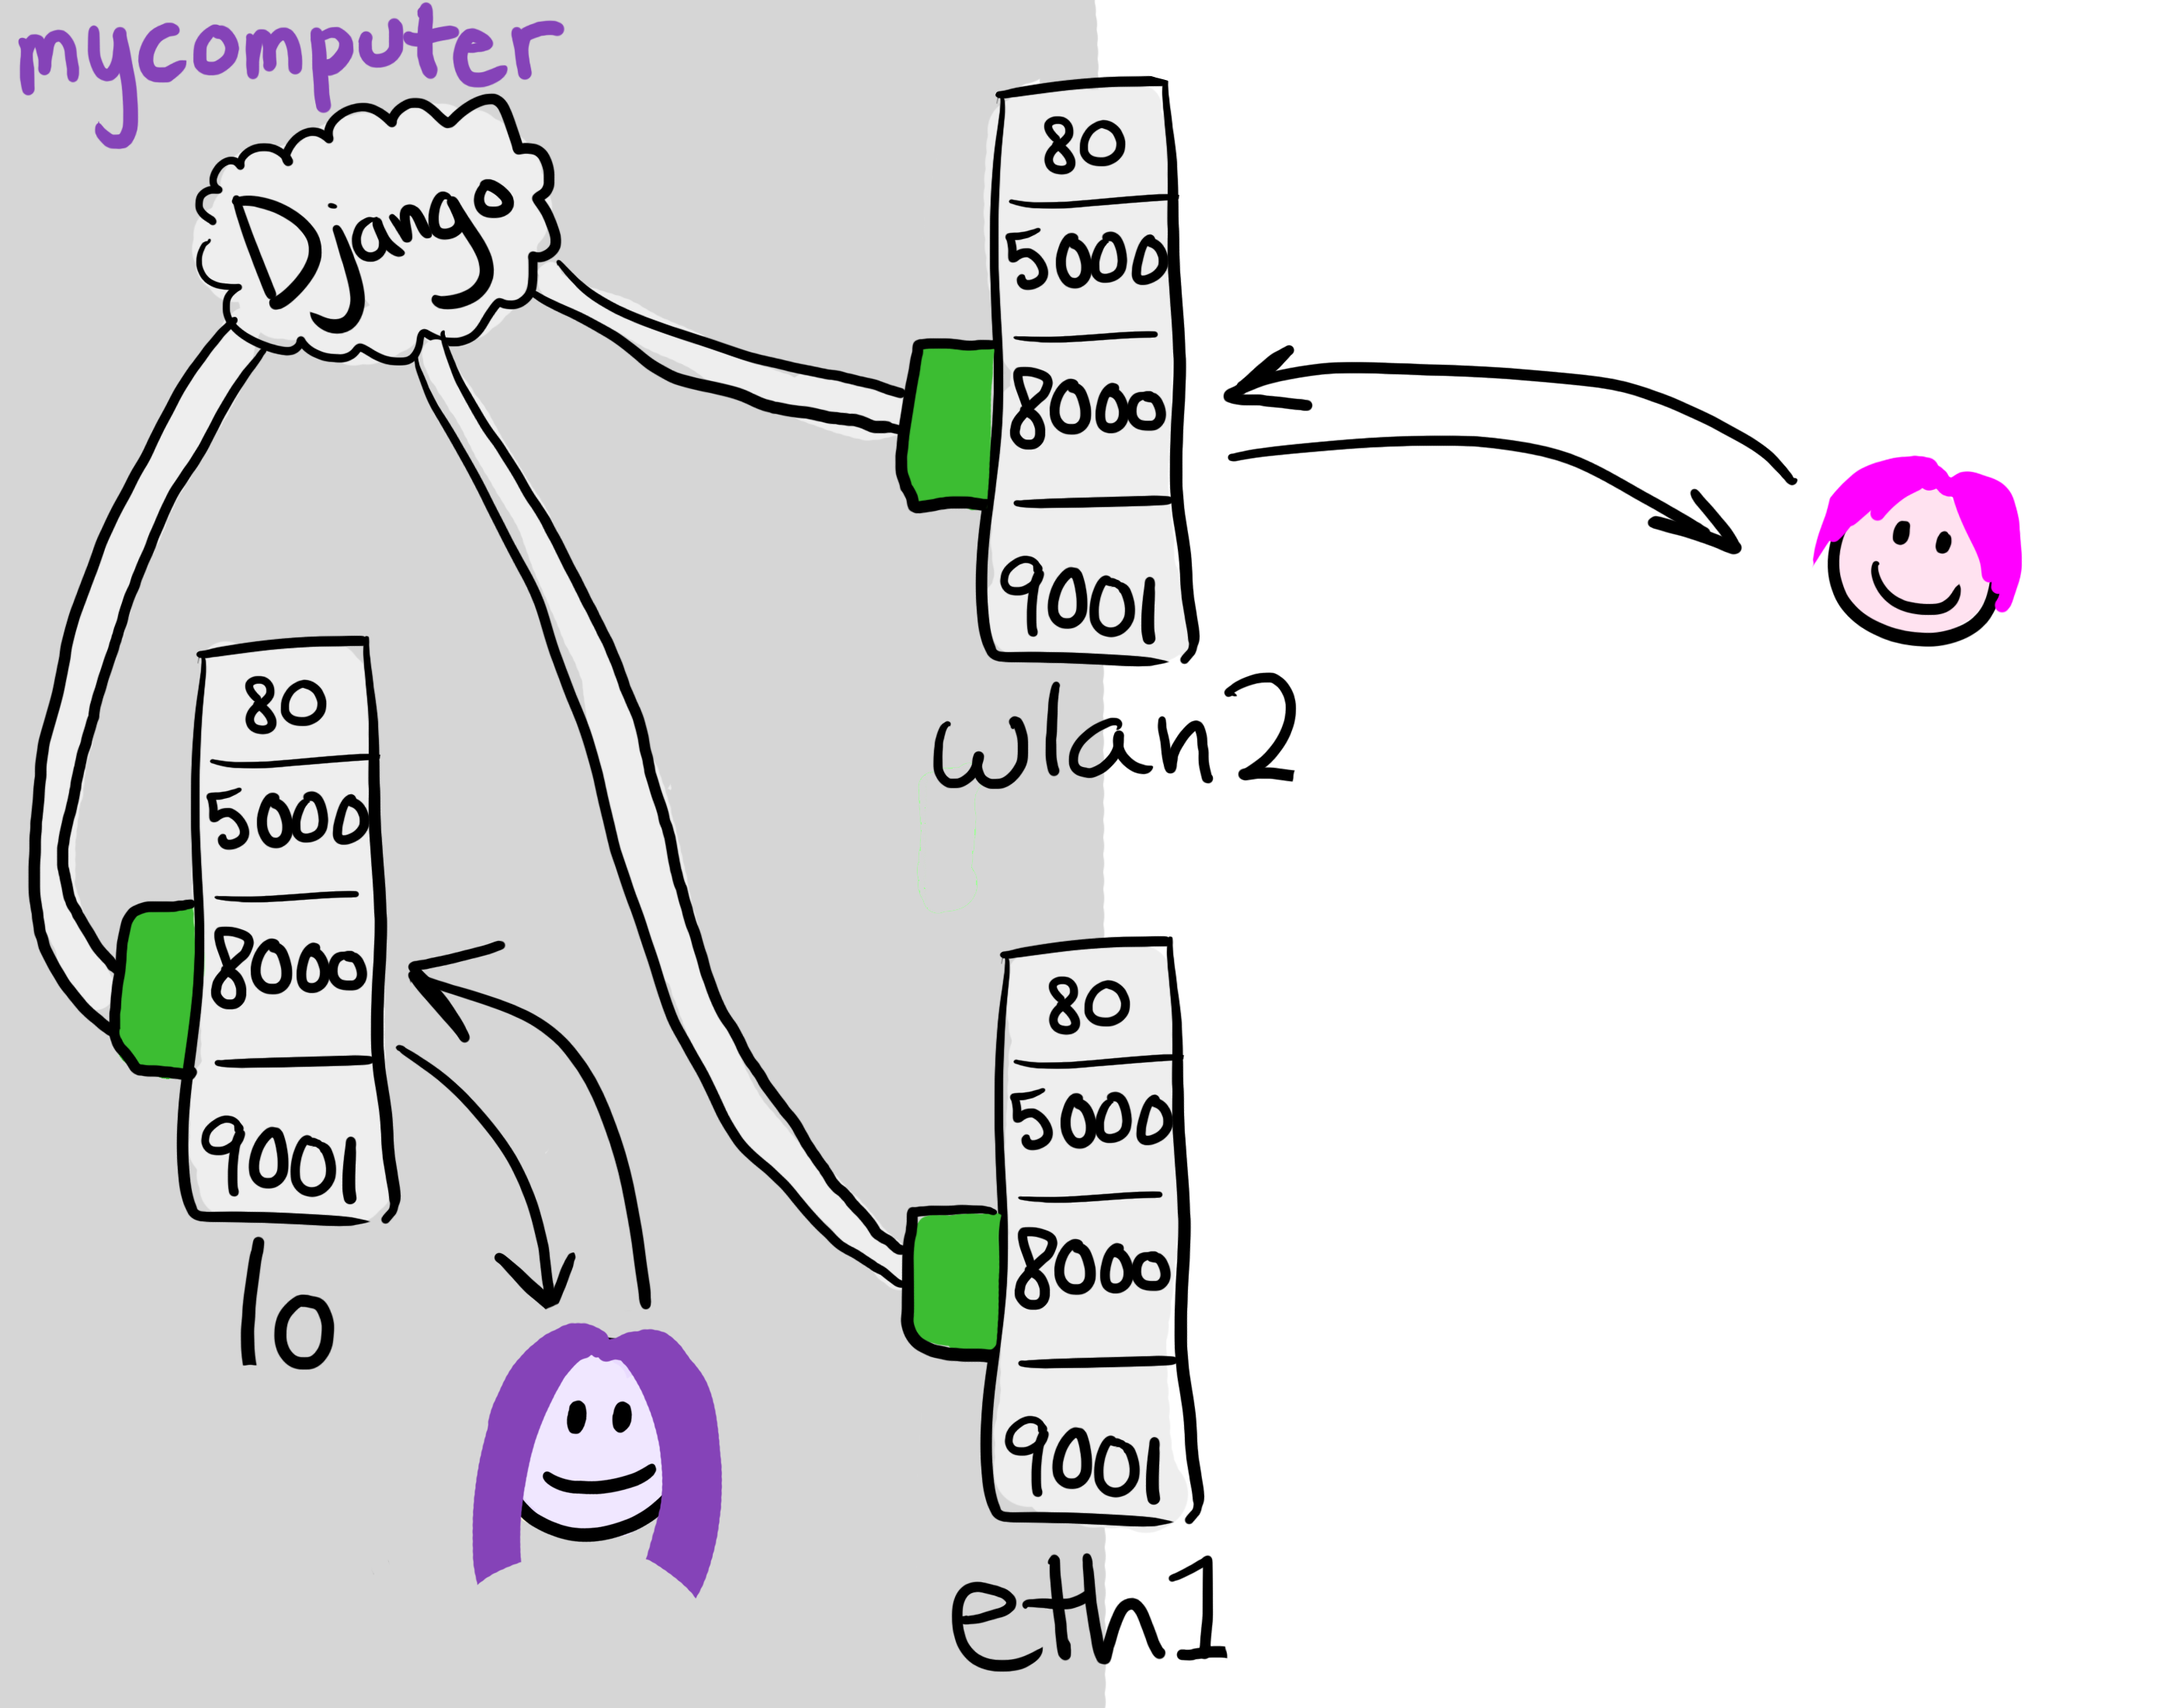 mycomputer
Django
80
5000
8000
9001
wlan2
80
5000
8000
9001
lo
80
5000
8000
9001
eth1